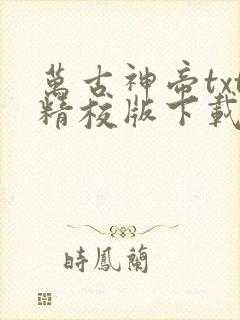 萬古神帝txt
精校版下載
時鳳蘭